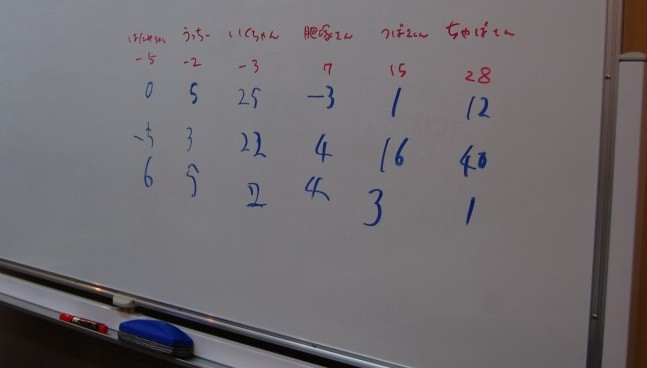 うっちー いくちゃん 肥塚さん つぼさん ちゃぱさん
-5 -2 -3 7 15 28
0 5 25 -3 1 12
-5 3 22 4 16 40
6 5 2 4 3 1